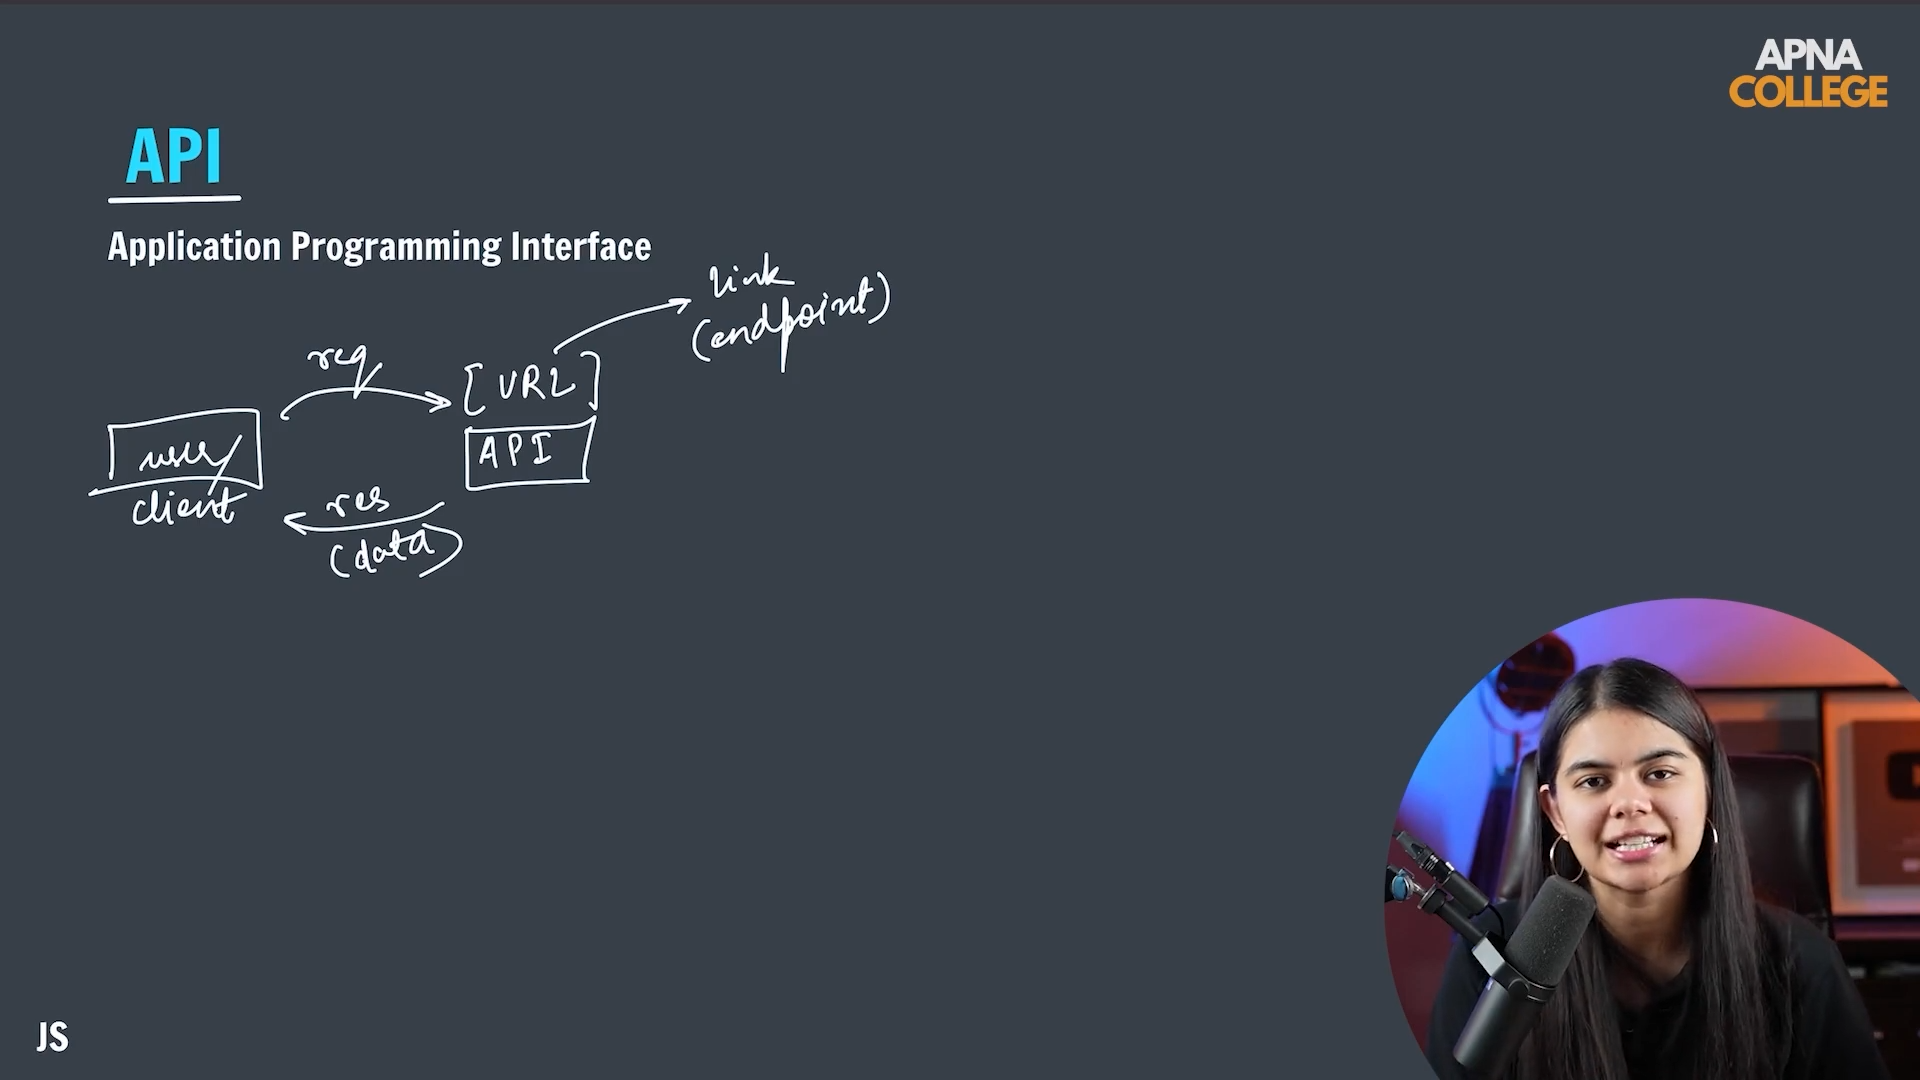 APNA
COLLEGE
API
Application Programming Interface
link
(endpoint)
req
[URL]
user/
API
client
res
(data)
JS